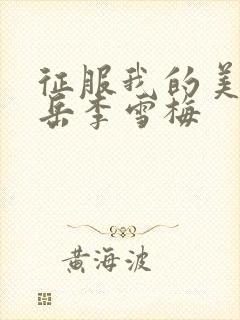 征服我的美
岳李雪梅
黄海波